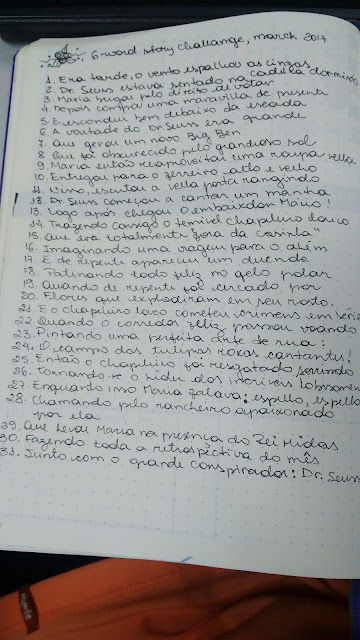 6-word story challange, march 2017
1. Era tarde, o vento espalhou as cinzas
2. Dr. Seuss estava sentado na cadeia dormindo
3. Maria brigar pelo direito de votar
4. Depois comprar uma maravilha de presente
5. E escondeu bem debaixo da escada
6. A vontade do Dr. Seuss era grande
7. Que gerou um novo Big Ben
8. Que foi obscurecido pelo grandioso sol
9. Mario então reaproveitou uma roupa velha
10. Entregou para o ferreiro alto e velho
11. Nisso, escutou a velha porta rangindo
12. Dr. Seuss começou a cantar um mantra
13. Logo após chegou o embaixador Mário!
14. Trazendo consigo o temível chapeleiro louco
15. Que era totalmente "fora da casinha"
16. Imaginando uma viagem para o além
17. E de repente apareceu um duende
18. Patinando todo feliz no gelo polar
19. Quando de repente foi cercado por
20. Flores que explodiram em seu rosto.
21. E o chapeleiro louco cometeu crimens em série
22. Quando o corredor feliz passou voando
23. Pintando uma perfeita arte de rua:
24. O campo das tulipas roxas cantantes!
25. Então o chapeleiro foi resgatado sorrindo
26. Tornando-se o líder dos incríveis lobisomens
27. Enquanto isso Maria falava: espelho, espelho
28. Chamando pelo rancheiro apaixonado
por ela
29. Que leva Maria na presença do Rei Midas
30. Fazendo toda a retrospectiva do mês
31. Junto com o grande conspirador: Dr. Seuss